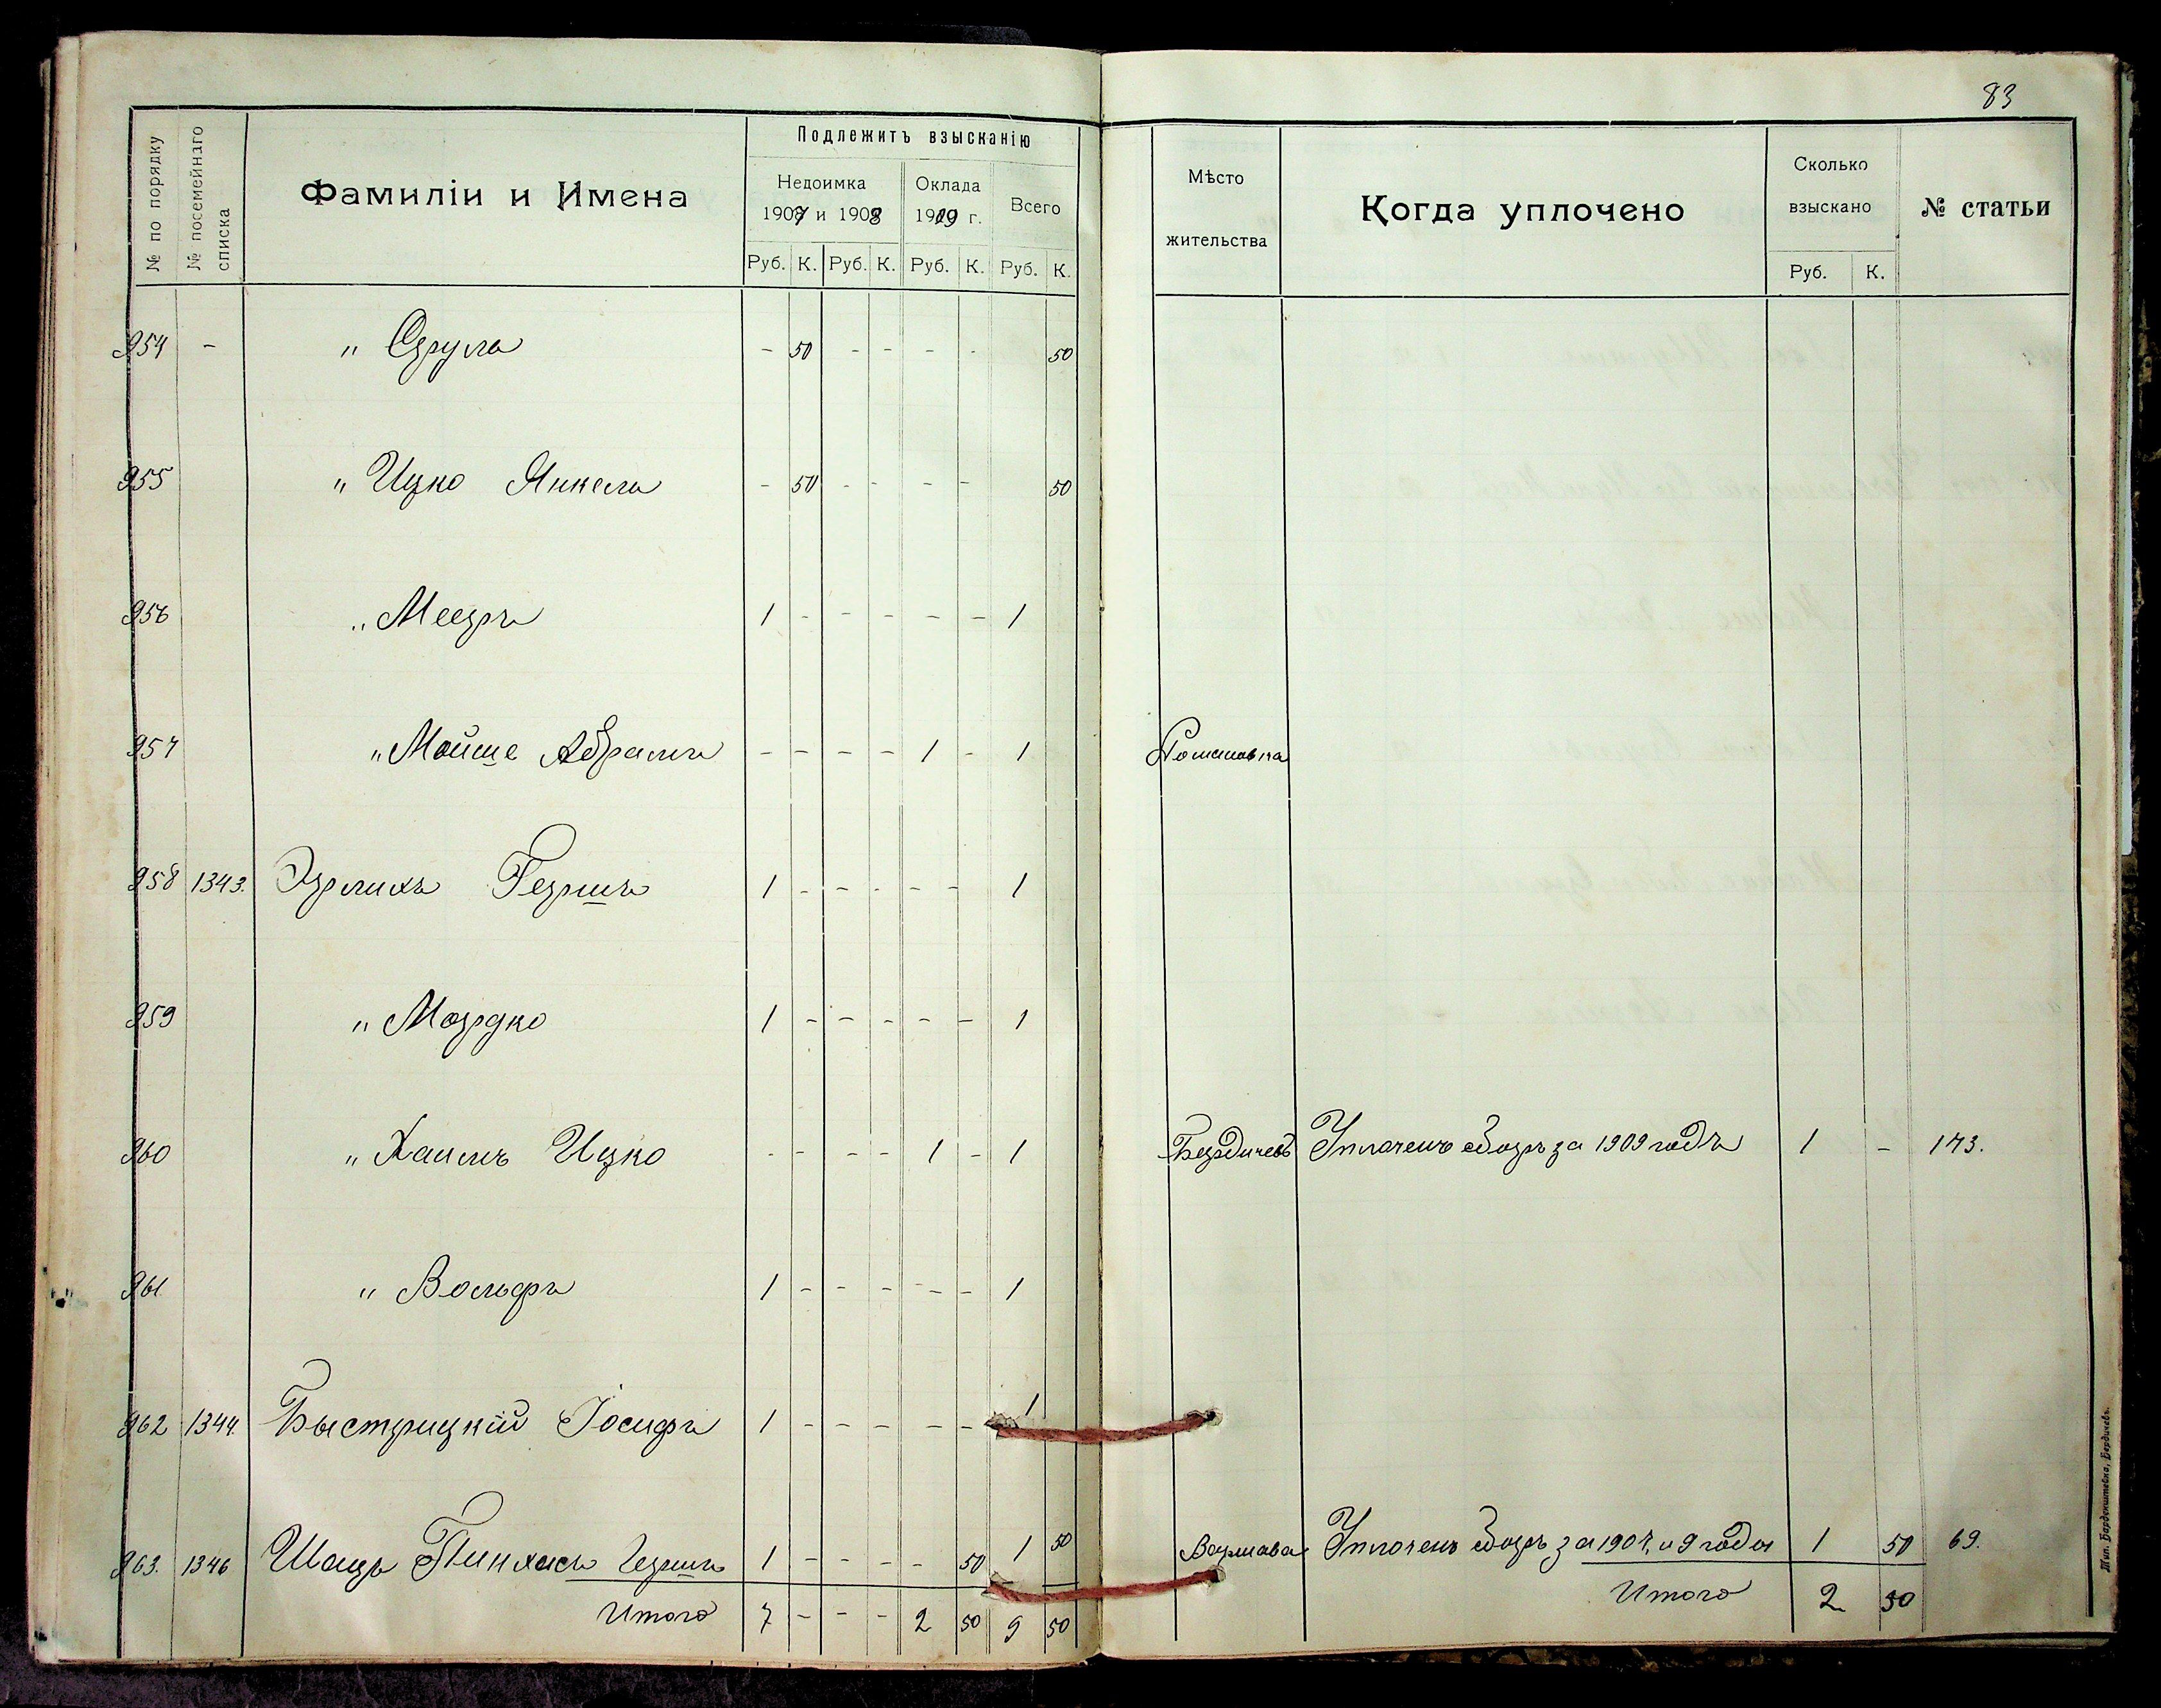 83
№ по порядку
№ посемейнаго списка
Фамиліи и Имена
Подлежитъ взысканію
Недоимка
1907 и 1908
Оклада
1909 г.
Всего
Руб. К. Руб. К. Руб. К. Руб. К.
Мѣсто
жительства
Когда уплочено
Сколько
взыскано
Руб. К.
№ статьи
954 - " Сруль - 50 - - - - 50
955 " Ицко Янкель - 50 - - - - 50
956 " Мееръ 1 - - - - - 1
957 " Мойше Абрамъ - - - - 1 - 1 Романовка
958 1343. Эрлихъ Гершъ 1 - - - - - 1
959 " Мордко 1 - - - - - 1
960 " Хаимъ Ицко - - - - 1 - 1 Бердичевъ Уплоченъ сборъ за 1909 годъ 1 - 173.
961 " Вольфъ 1 - - - - - 1
962 1344. Быстрицкій Іосифъ 1 - - - - - 1
963. 1346 Шацъ Пинхасъ Гершъ 1 - - - - 50 1 50 Варшава Уплоченъ сборъ за 1907 и 9 годы 1 50 69.
Итого 7 - - - 2 50 9 50 Итого 2 50
Тип. Барденштейна, Бердичевъ.